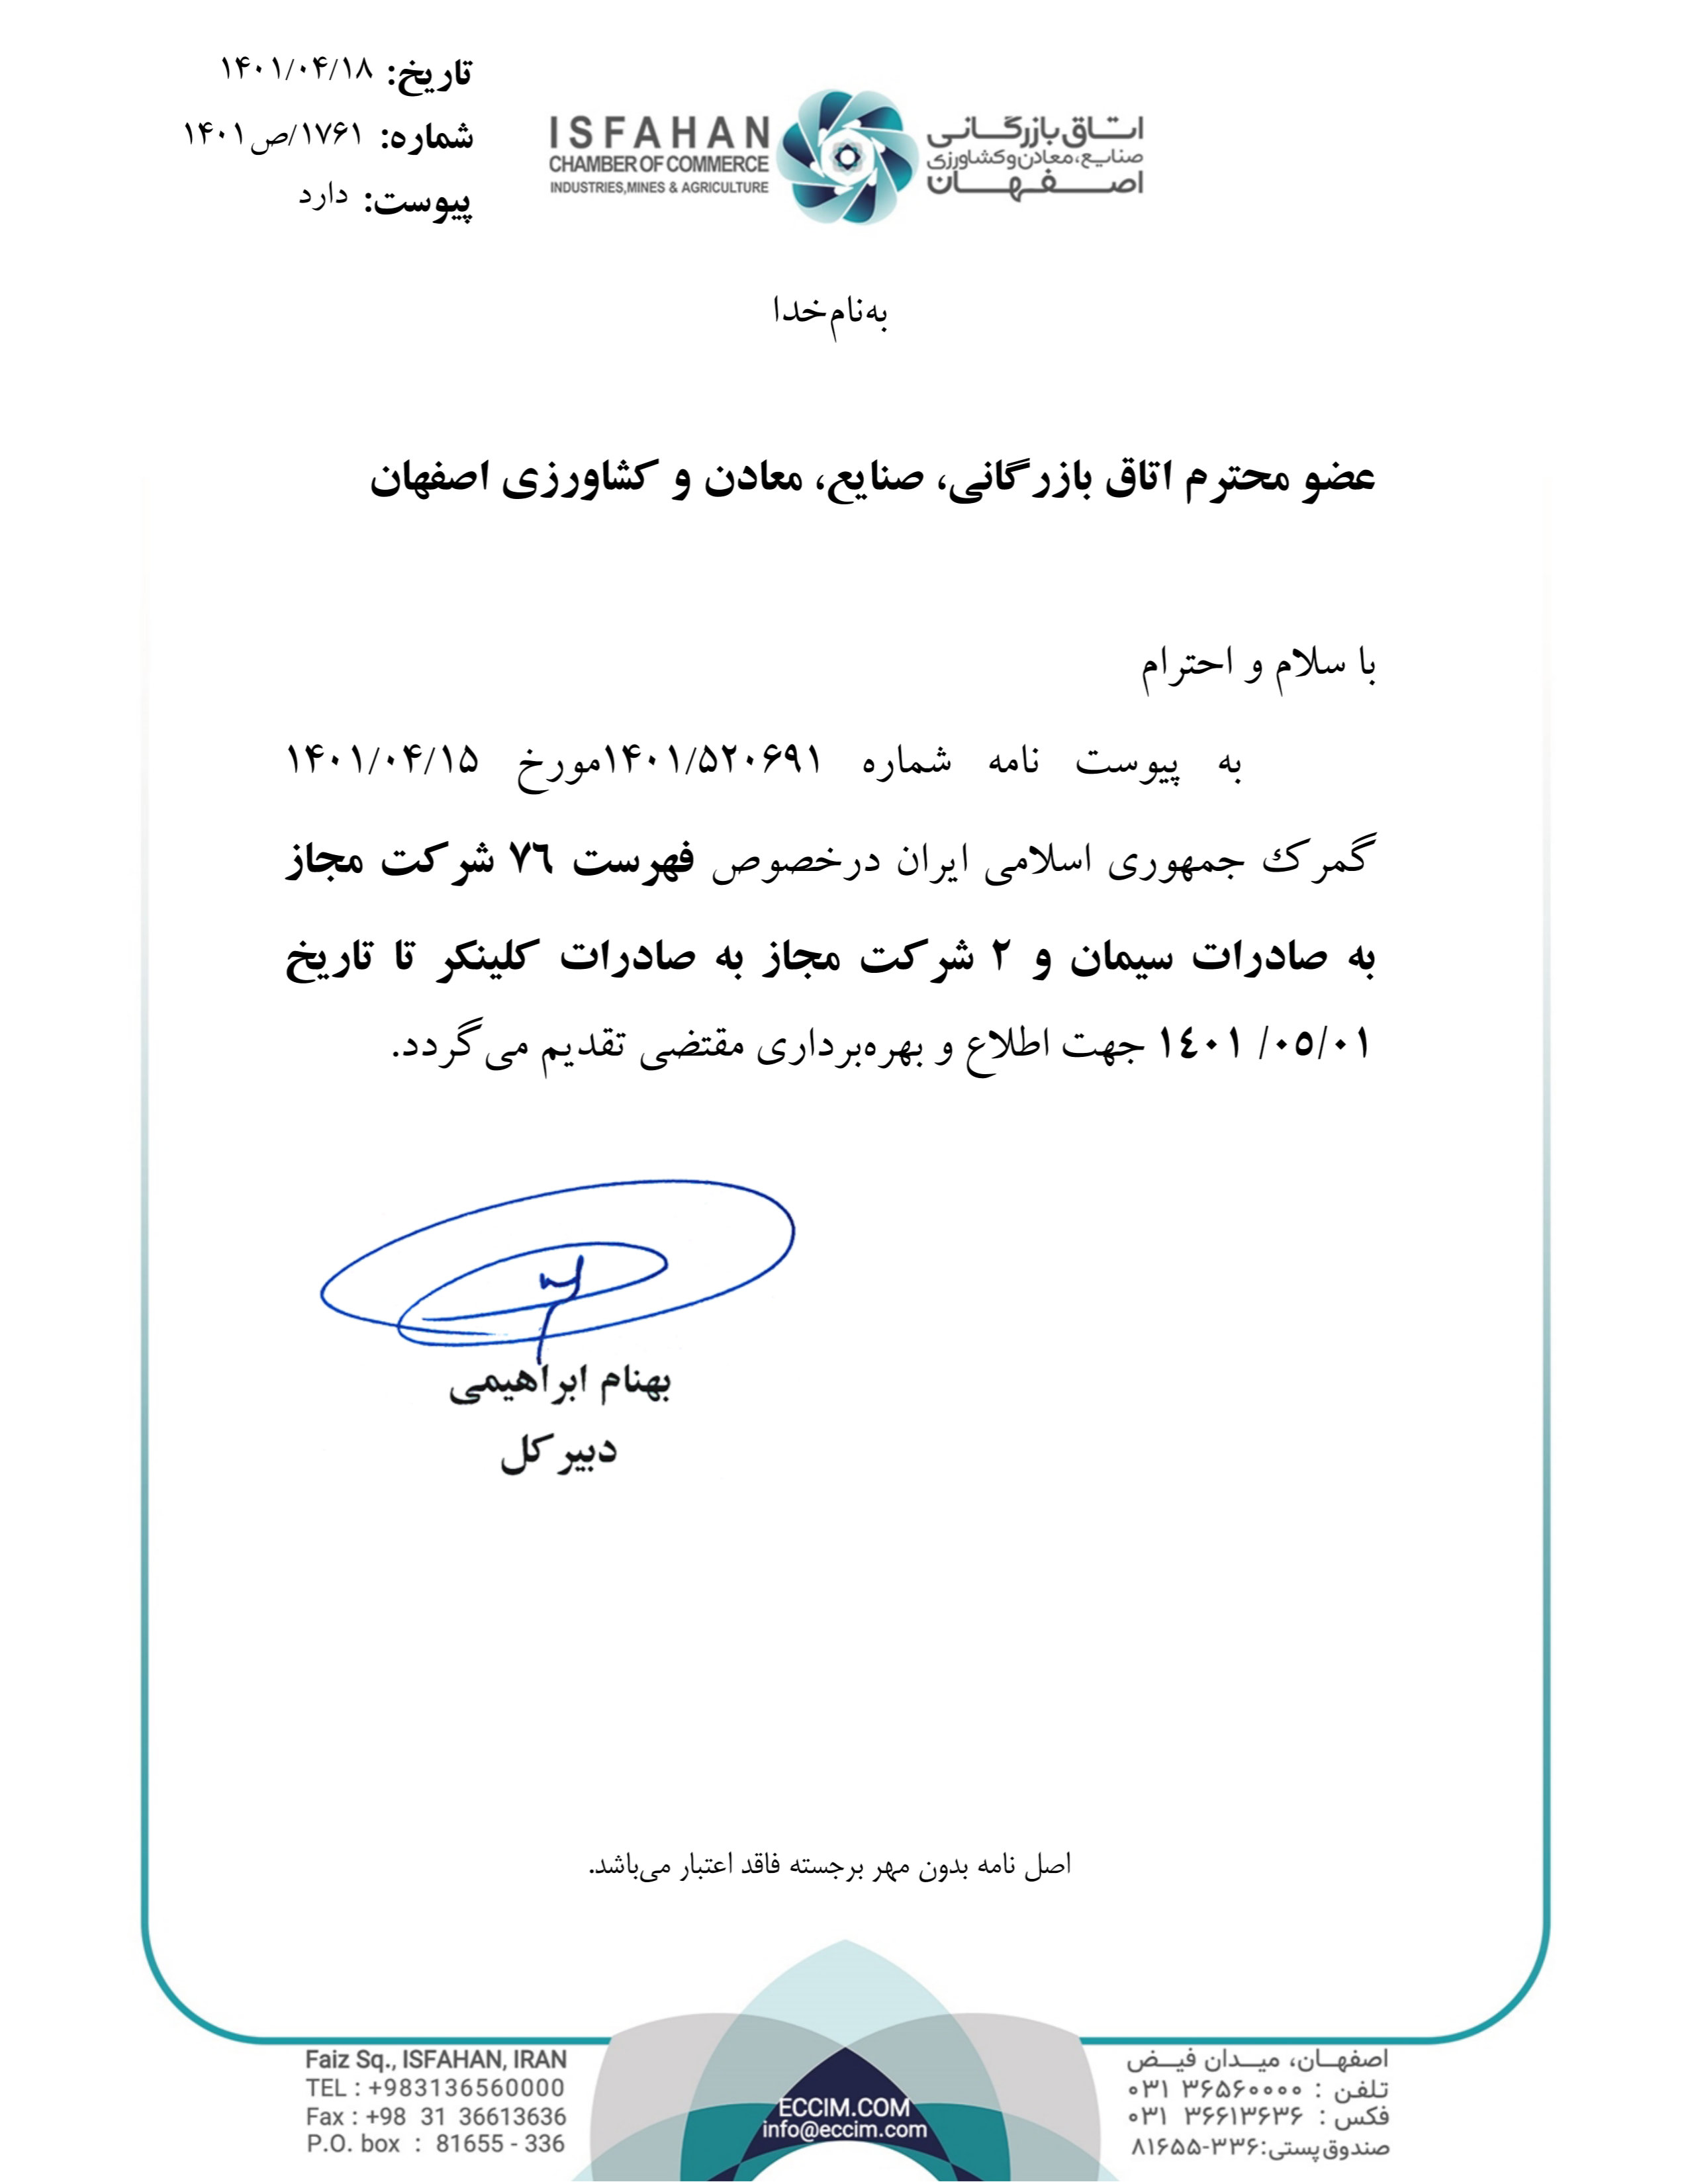 تاریخ: ۱۴۰۱/۰۴/۱۸
شماره: ۱۷۶۱/ص۱۴۰۱
پیوست: دارد
ISFAHAN
CHAMBER OF COMMERCE
INDUSTRIES,MINES & AGRICULTURE
اتاق بازرگانی
صنایع، معادن و کشاورزی
اصفهان
به‌نام‌خدا
عضو محترم اتاق بازرگانی، صنایع، معادن و کشاورزی اصفهان
با سلام و احترام
به پیوست نامه شماره ۱۴۰۱/۵۲۰۶۹۱مورخ ۱۴۰۱/۰۴/۱۵
گمرك جمهوری اسلامی ایران درخصوص فهرست ٧٦ شرکت مجاز
به صادرات سیمان و ٢ شرکت مجاز به صادرات کلینکر تا تاریخ
٠٥/٠١/ ١٤٠١ جهت اطلاع و بهره‌برداری مقتضی تقدیم می‌گردد.
بهنام ابراهیمی
دبیر کل
اصل نامه بدون مهر برجسته فاقد اعتبار می‌باشد.
Faiz Sq., ISFAHAN, IRAN
TEL : +983136560000
Fax : +98 31 36613636
P.O. box : 81655 - 336
ECCIM.COM
info@eccim.com
اصفهان، میدان فیض
تلفن : ۳۶۵۶۰۰۰۰ ۰۳۱
فکس : ۳۶۶۱۳۶۳۶ ۰۳۱
صندوق‌پستی:۳۳۶-۸۱۶۵۵